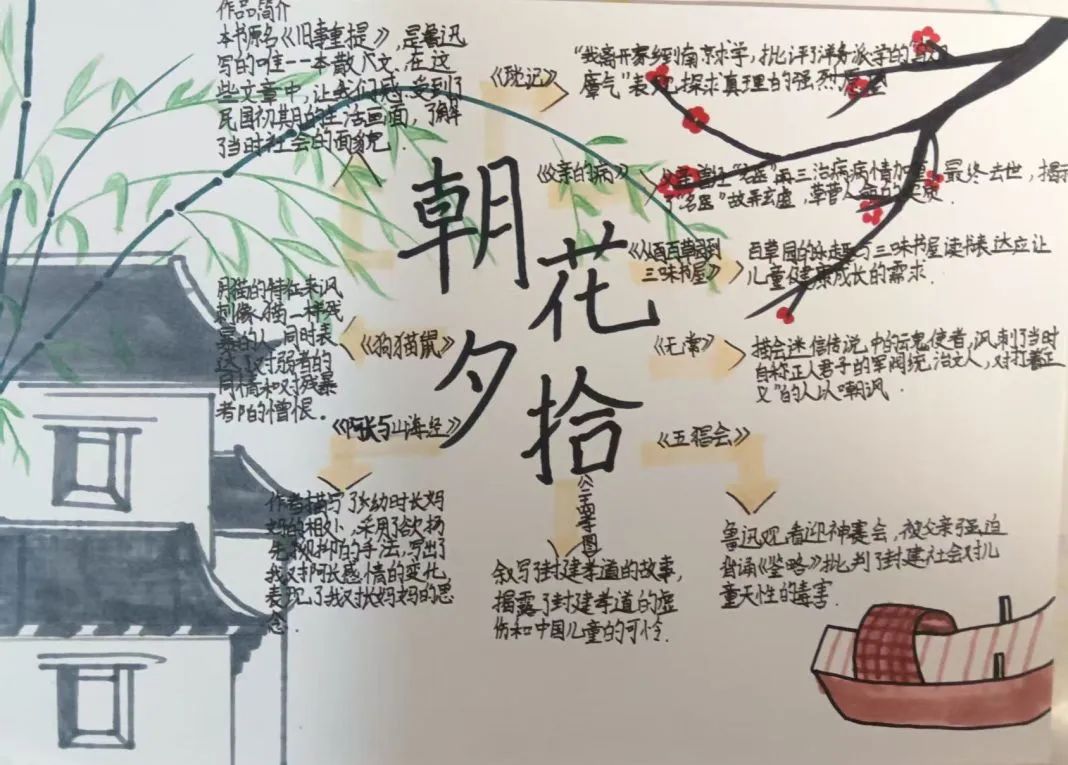 作品简介
本书原名《旧事重提》,是鲁迅
写的唯一一本散文,在这
些文章中,让我们感受到了
民国初其月的生活画面,了解
了当时社会的面貌.
《琐记》
"我离开家乡到南京求学,批评了洋务派学的"乌烟
瘴气"表现,探求真理的强烈
《父亲的病》
"名医"再三治病病情加重,最终去世,揭示
了"名医"故弄玄虚,草菅人命的实质.
《从百百草园到
三味书屋》
百草园的乐趣与三味书屋读书表达应让
儿童健康成长的需求.
《无常》
描会迷信传说中的勾鬼使者,讽刺了当时
自称正人君子的军阀统治文人,对打着正
义"的人以嘲讽.
《五猖会》
鲁迅观看迎神赛会,被父亲强迫
背诵《鉴略》批判了封建社会对儿
童天性的毒害.
朝花
夕拾
《狗猫鼠》
用猫的特征来讽
刺像猫一样残
暴的人,同时表
达了对弱者的
同情和对残暴
者的憎恨.
《阿长与山海经》
作者描写了幼时长妈
妈的相处,采用了欲扬
先抑的手法,写出了
我对阿长感情的变化,
表现了我对长妈妈的思
念.
孝图
叙写了封建孝道的故事,
揭露了封建孝道的虚
伤和中国儿童的可怜.